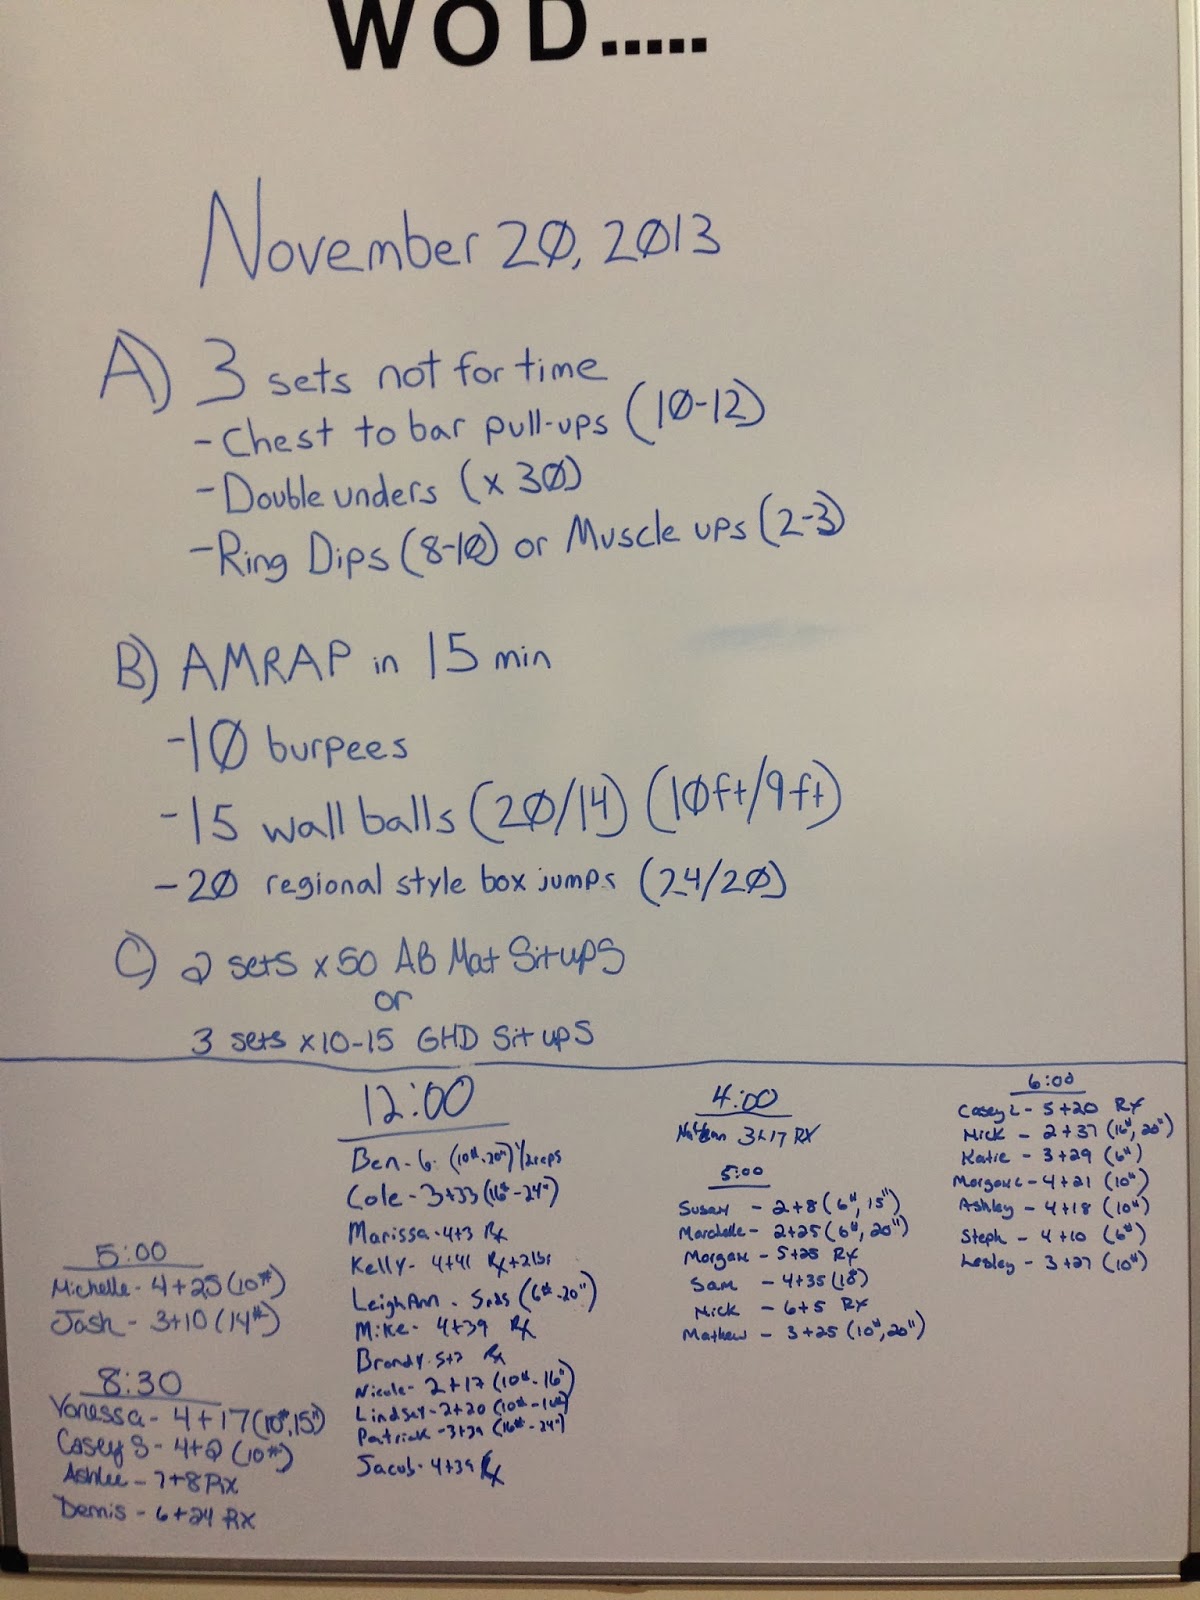 WOD.....
November 20, 2013
A) 3 sets not for time
- Chest to bar pull-ups (10-12)
- Double unders (x 30)
- Ring Dips (8-10) or Muscle ups (2-3)
B) AMRAP in 15 min
-10 burpees
-15 wall balls (20/14) (10ft/9ft)
-20 regional style box jumps (24/20)
C) 2 sets x50 AB Mat Situps
or
3 sets x10-15 GHD Sit ups
5:00
Michelle - 4+25 (10#)
Josh - 3+10 (14#)
8:30
Vanessa - 4+17 (10#, 15")
Casey S - 4+2 (10#)
Ashlee - 7+8 Rx
Dennis - 6+24 RX
12:00
Ben - 6 (10#-20") 1/2 reps
Cole - 3+33 (16#-24")
Marissa - 4+3 Rx
Kelly - 4+41 Rx+2lbs
LeighAnn - (6#-20")
Mike - 4+39 Rx
Brandy Rx
Nicole - 2+17 (10#-16")
Lindsey - 2+20 (10#-16")
Patrick - 3+39 (16#-24")
Jacob - 4+39 Rx
4:00
3+17 RX
5:00
Susan - 2+8 (6#, 15")
2+25 (6#, 20")
Morgan - 5+25 Rx
Sam - 4+35 (18)
Nick - 6+5 Rx
Mathew - 3+25 (10#, 20")
6:00
Casey L - 5+20 RX
Nick - 2+37 (16#, 20")
Katie - 3+29 (6#)
Morgan L - 4+21 (10#)
Ashley - 4+18 (10#)
Steph - 4+10 (6#)
Lesley - 3+27 (10#)